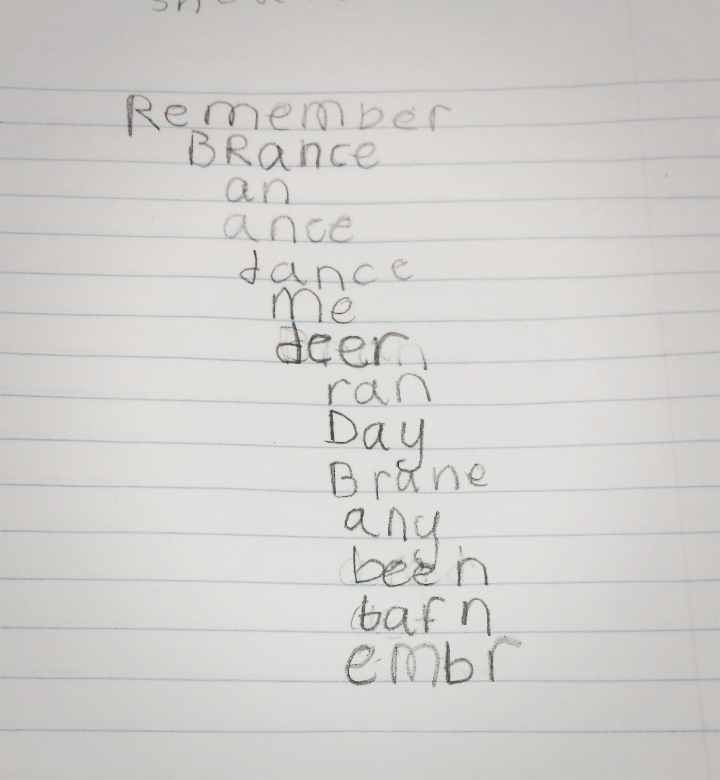 Remember
BRance
an
ance
dance
me
deer
ran
Day
Brane
any
been
barn
embr